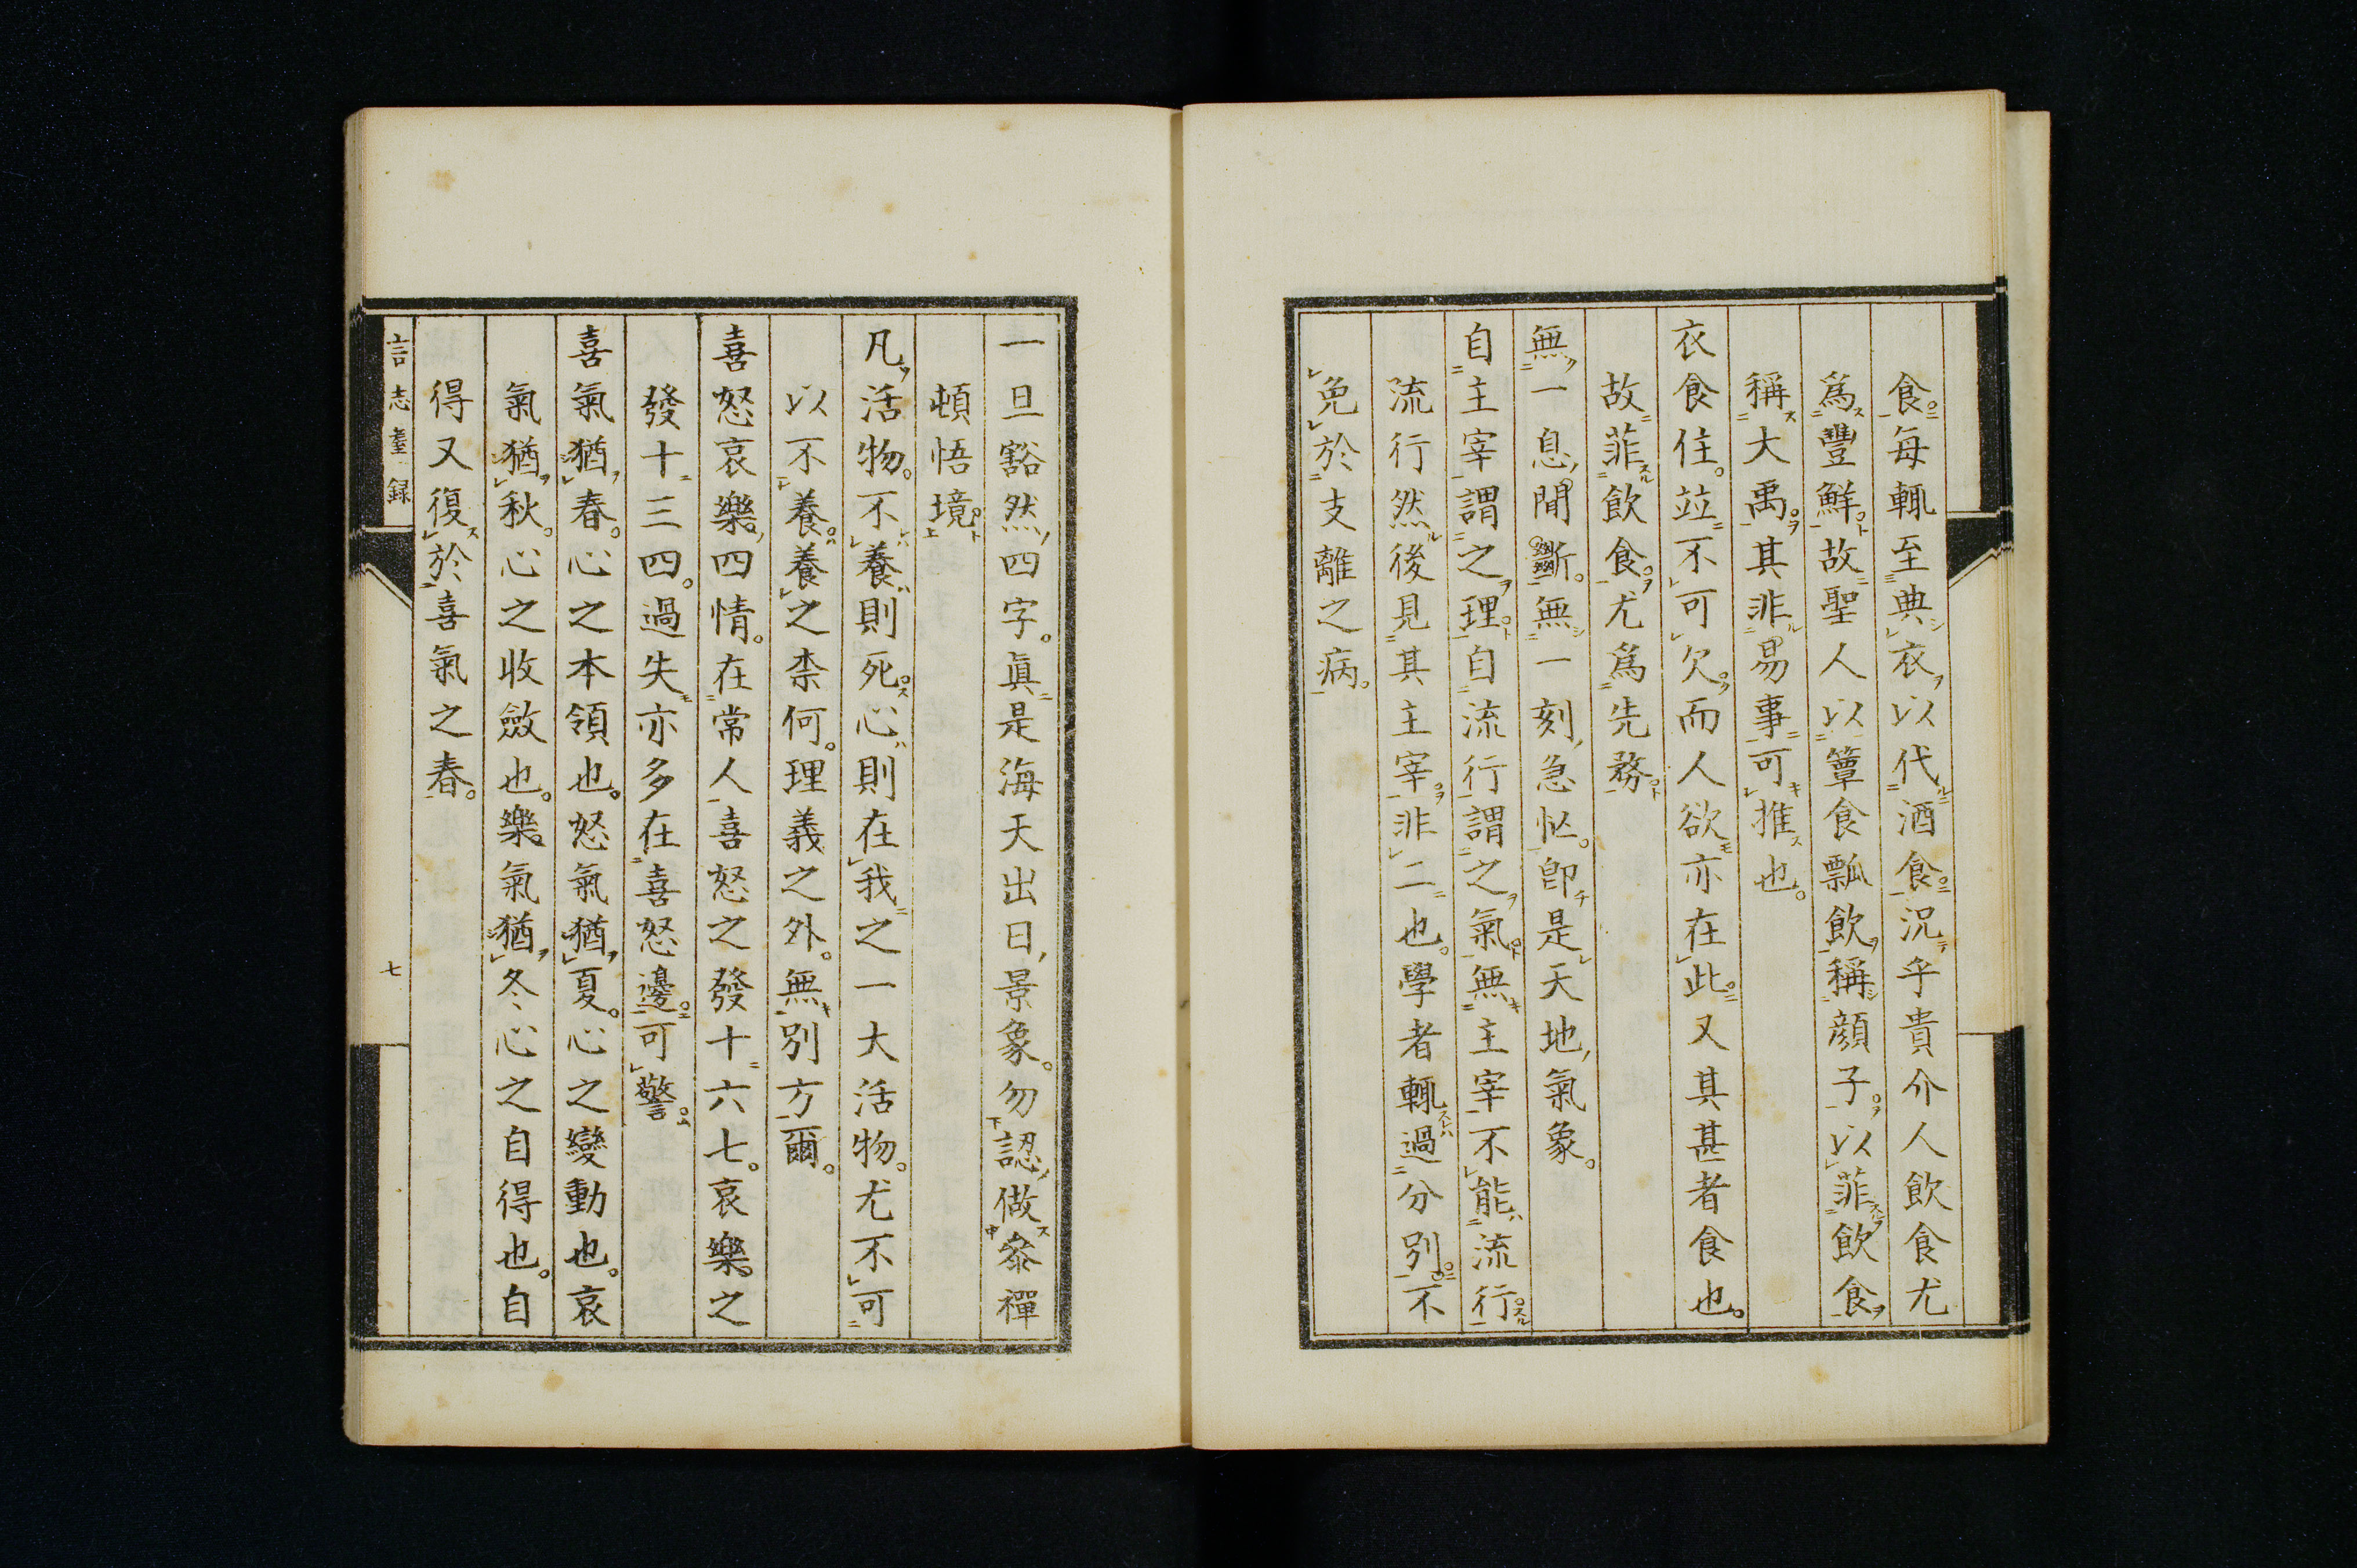 食。每輒至典衣以代酒食。況乎貴介人飲食尤
爲豐鮮。故聖人以簞食瓢飲稱顔子。以菲飲食
稱大禹。其非易事可推也。
衣食住。竝不可欠。而人欲亦在此。又其甚者食也。
故菲飲食。尤爲先務。
無一息間斷。無一刻急忙。卽是天地氣象。
自主宰謂之理。自流行謂之氣。無主宰不能流行。
流行然後見其主宰。非二也。學者輒過分別。不
免於支離之病。
一旦豁然四字。眞是海天出日景象。勿認做參禪
頓悟境。
凡活物。不養則死。心則在我之一大活物。尤不可
以不養。養之柰何。理義之外。無別方爾。
喜怒哀樂四情。在常人喜怒之發十六七。哀樂之
發十三四。過失亦多在喜怒邊。可警。
喜氣猶春。心之本領也。怒氣猶夏。心之變動也。哀
氣猶秋。心之收斂也。樂氣猶冬。心之自得也。自
得又復於喜氣之春。
言志耋録
七